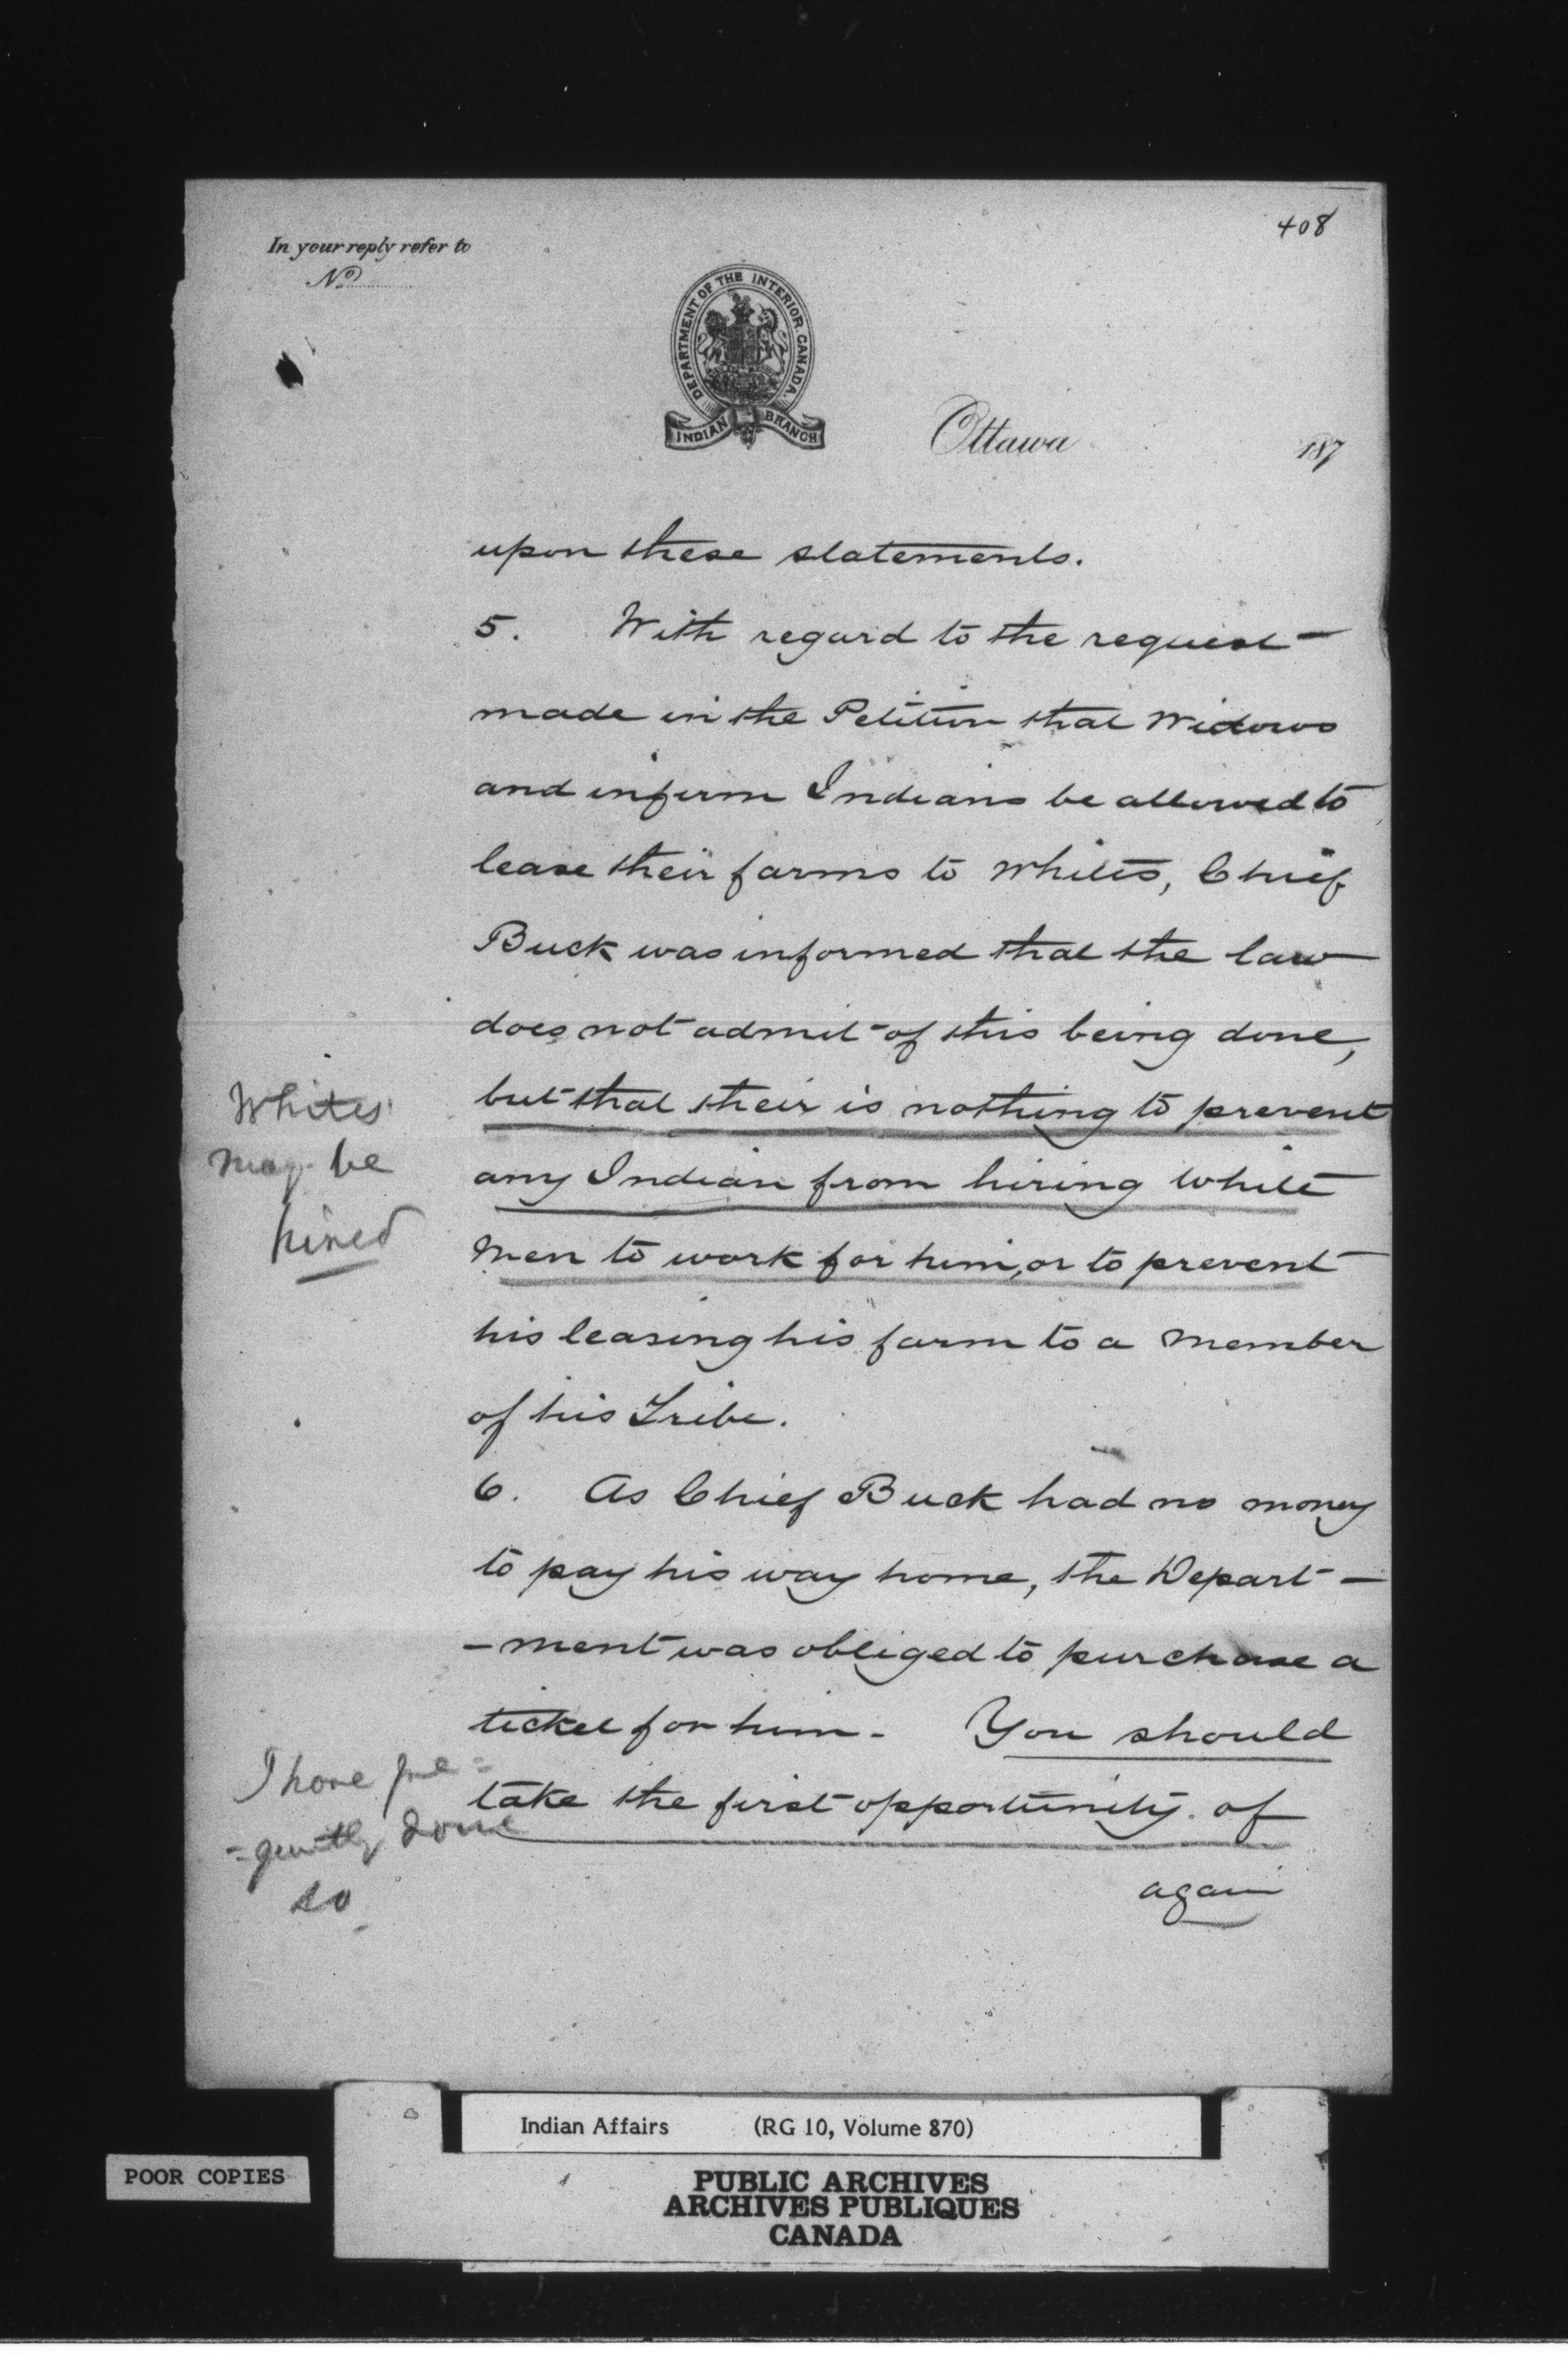 408
In your reply refer to
No
DEPARTMENT OF THE INTERIOR. CANADA.
INDIAN BRANCH
Ottawa 187
upon these statements.
5. With regard to the request
made in the Petition that Widows
and infirm Indians be allowed to
lease their farms to Whites, Chief
Buck was informed that the law
does not admit of this being done,
but that their is nothing to prevent
any Indian from hiring White
Men to work for him, or to prevent
his leasing his farm to a Member
of his Tribe.
Whites
may be
hired
6. As Chief Buck had no money
to pay his way home, the Depart-
-ment was obliged to purchase a
ticket for him. You should
take the first opportunity of
again
I have fre=
=quently done
so
Indian Affairs (RG 10, Volume 870)
POOR COPIES
PUBLIC ARCHIVES
ARCHIVES PUBLIQUES
CANADA